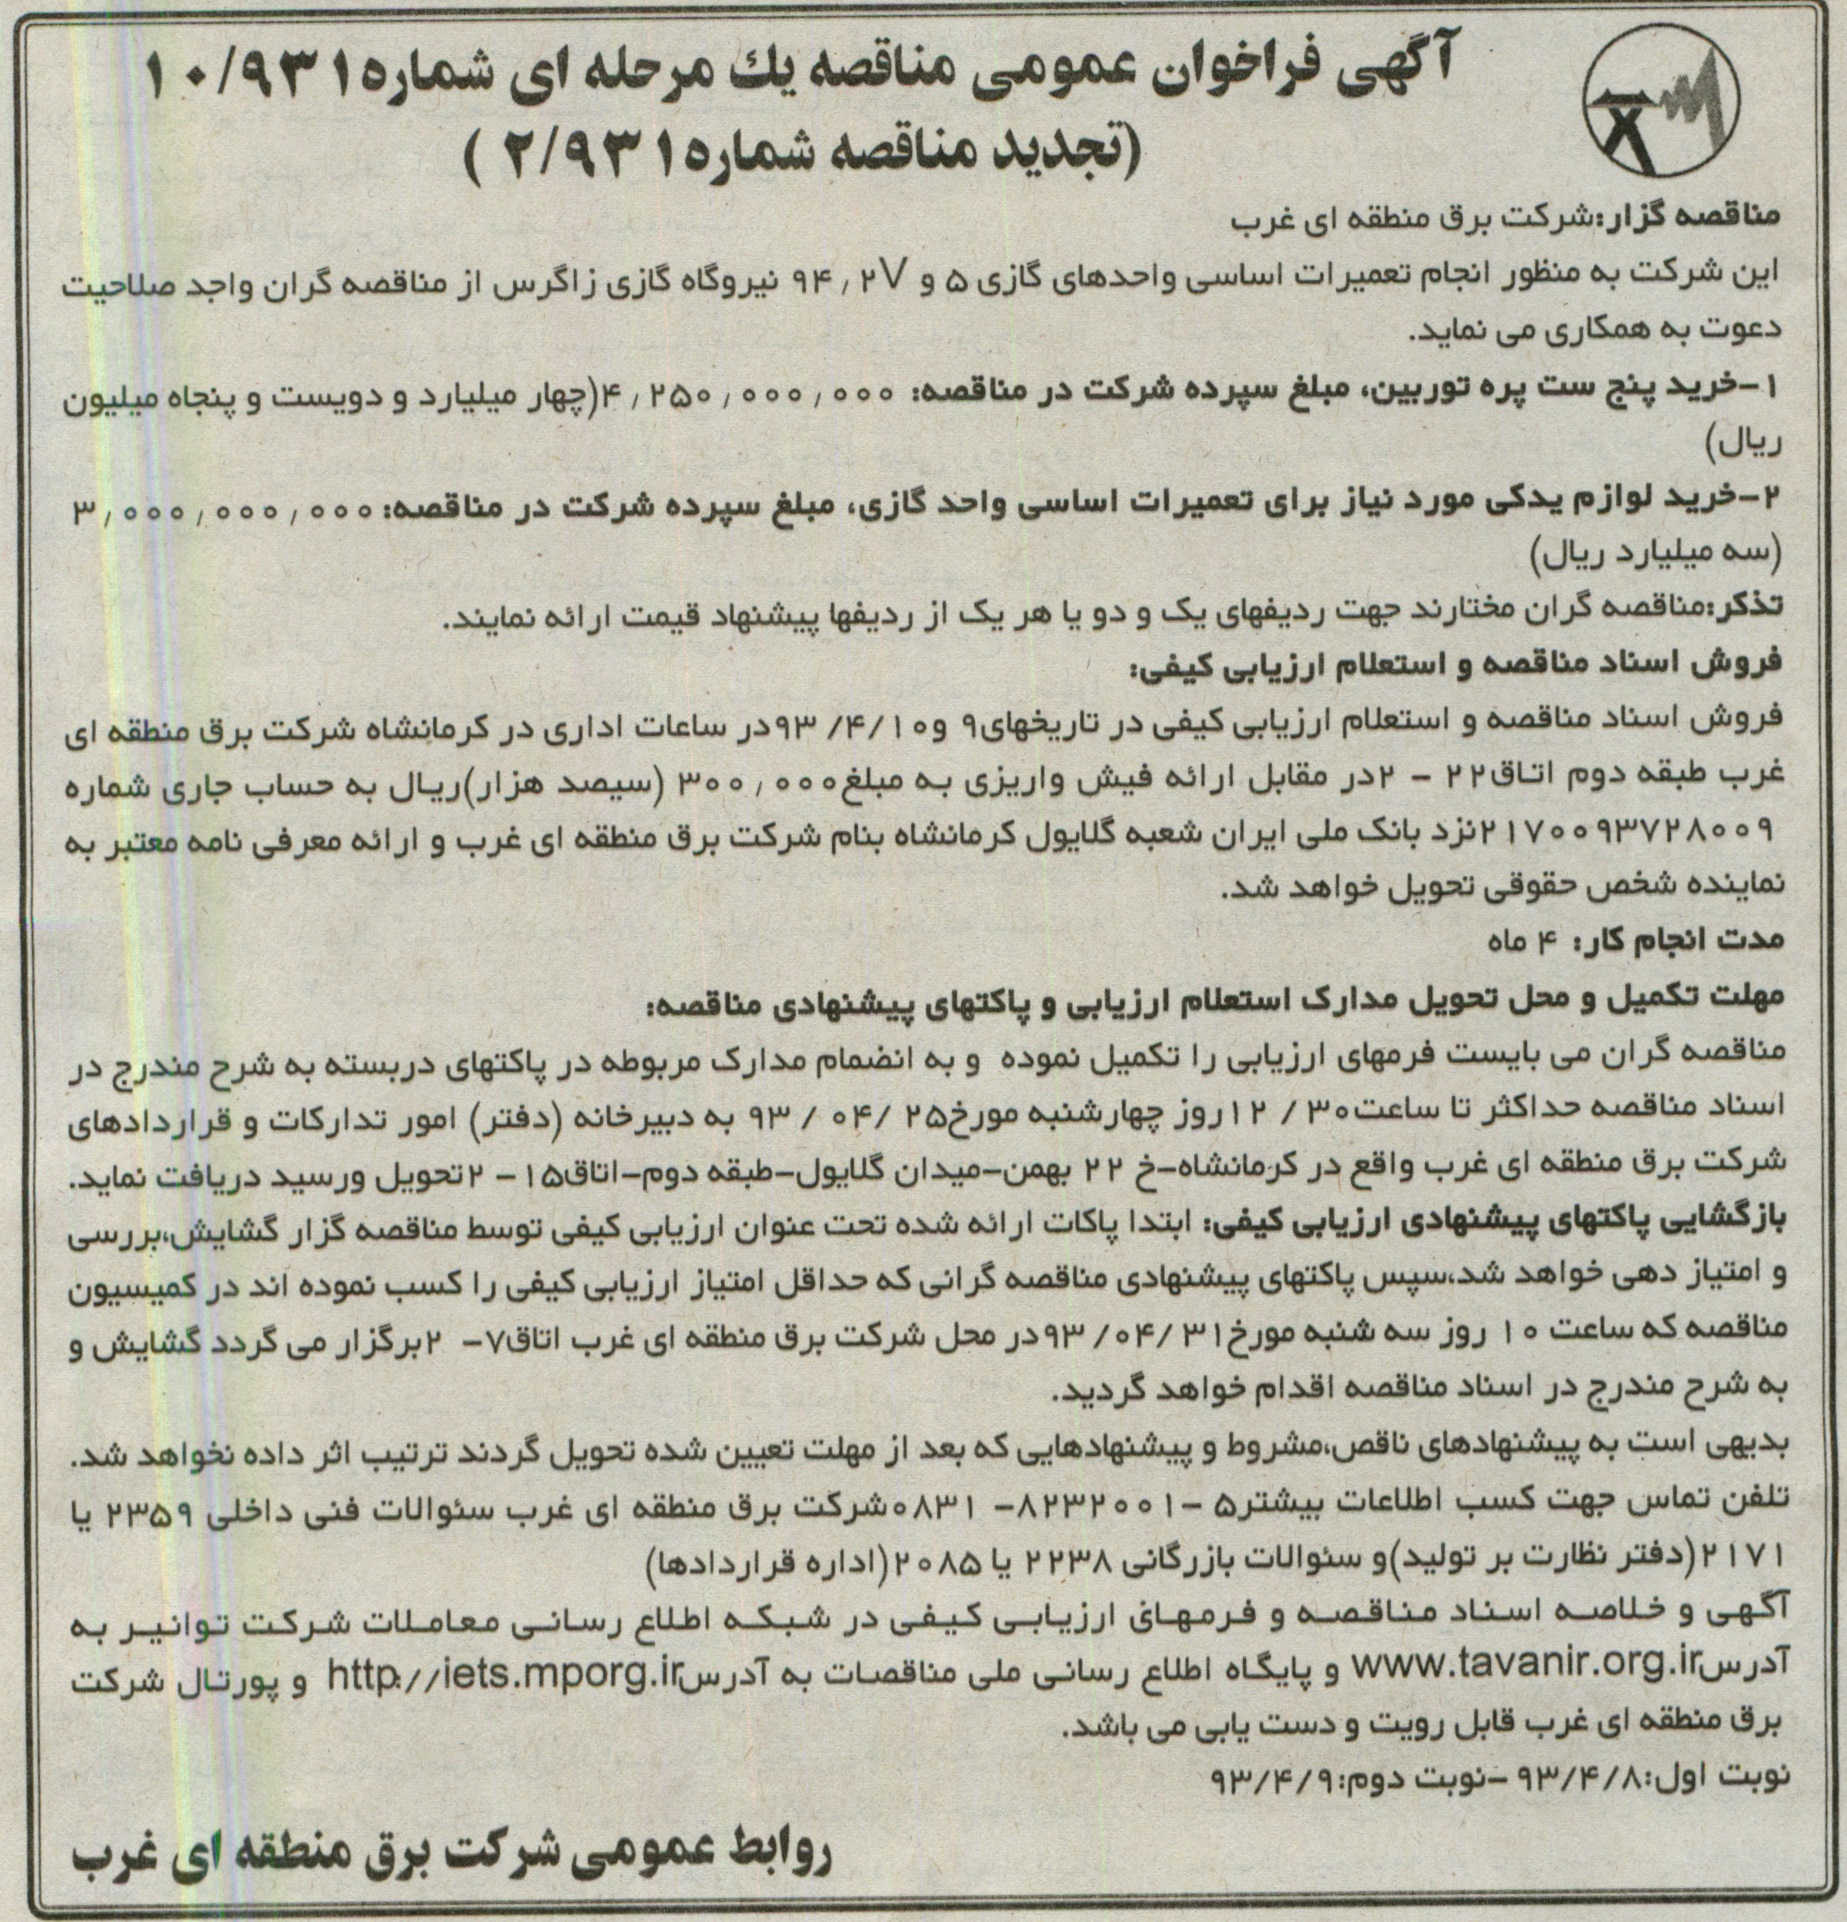 آگهی فراخوان عمومی مناقصه یك مرحله ای شماره۱۰/۹۳۱
(تجدید مناقصه شماره۲/۹۳۱ )
مناقصه گزار:شرکت برق منطقه ای غرب
این شرکت به منظور انجام تعمیرات اساسی واحدهای گازی ۵ و ۹۴٫۲V نیروگاه گازی زاگرس از مناقصه گران واجد صلاحیت
دعوت به همکاری می نماید.
۱-خرید پنج ست پره توربین، مبلغ سپرده شرکت در مناقصه: ۴٫۲۵۰٫۰۰۰٫۰۰۰(چهار میلیارد و دویست و پنجاه میلیون
ریال)
۲-خرید لوازم یدکی مورد نیاز برای تعمیرات اساسی واحد گازی، مبلغ سپرده شرکت در مناقصه:۳٫۰۰۰٫۰۰۰٫۰۰۰
(سه میلیارد ریال)
تذکر:مناقصه گران مختارند جهت ردیفهای یک و دو یا هر یک از ردیفها پیشنهاد قیمت ارائه نمایند.
فروش اسناد مناقصه و استعلام ارزیابی کیفی:
فروش اسناد مناقصه و استعلام ارزیابی کیفی در تاریخهای۹ و۹۳/۴/۱۰در ساعات اداری در کرمانشاه شرکت برق منطقه ای
غرب طبقه دوم اتاق۲۲ - ۲در مقابل ارائه فیش واریزی به مبلغ۳۰۰٫۰۰۰ (سیصد هزار)ریال به حساب جاری شماره
۲۱۷۰۰۹۳۷۲۸۰۰۹نزد بانک ملی ایران شعبه گلایول کرمانشاه بنام شرکت برق منطقه ای غرب و ارائه معرفی نامه معتبر به
نماینده شخص حقوقی تحویل خواهد شد.
مدت انجام کار: ۴ ماه
مهلت تکمیل و محل تحویل مدارک استعلام ارزیابی و پاکتهای پیشنهادی مناقصه:
مناقصه گران می بایست فرمهای ارزیابی را تکمیل نموده و به انضمام مدارک مربوطه در پاکتهای دربسته به شرح مندرج در
اسناد مناقصه حداکثر تا ساعت۱۲/۳۰روز چهارشنبه مورخ۹۳/۰۴/۲۵ به دبیرخانه (دفتر) امور تدارکات و قراردادهای
شرکت برق منطقه ای غرب واقع در کرمانشاه-خ ۲۲ بهمن-میدان گلایول-طبقه دوم-اتاق۱۵- ۲تحویل ورسید دریافت نماید.
بازگشایی پاکتهای پیشنهادی ارزیابی کیفی: ابتدا پاکات ارائه شده تحت عنوان ارزیابی کیفی توسط مناقصه گزار گشایش،بررسی
و امتیاز دهی خواهد شد،سپس پاکتهای پیشنهادی مناقصه گرانی که حداقل امتیاز ارزیابی کیفی را کسب نموده اند در کمیسیون
مناقصه که ساعت ۱۰ روز سه شنبه مورخ۹۳/۰۴/۳۱در محل شرکت برق منطقه ای غرب اتاق۷- ۲برگزار می گردد گشایش و
به شرح مندرج در اسناد مناقصه اقدام خواهد گردید.
بدیهی است به پیشنهادهای ناقص،مشروط و پیشنهادهایی که بعد از مهلت تعیین شده تحویل گردند ترتیب اثر داده نخواهد شد.
تلفن تماس جهت کسب اطلاعات بیشتر۵ -۸۲۳۲۰۰۱- ۰۸۳۱شرکت برق منطقه ای غرب سئوالات فنی داخلی ۲۳۵۹ یا
۲۱۷۱(دفتر نظارت بر تولید)و سئوالات بازرگانی ۲۲۳۸ یا ۲۰۸۵(اداره قراردادها)
آگهی و خلاصه اسناد مناقصه و فرمهای ارزیابی کیفی در شبکه اطلاع رسانی معاملات شرکت توانیر به
آدرسwww.tavanir.org.ir و پایگاه اطلاع رسانی ملی مناقصات به آدرسhttp://iets.mporg.ir و پورتال شرکت
برق منطقه ای غرب قابل رویت و دست یابی می باشد.
نوبت اول:۹۳/۴/۸ -نوبت دوم:۹۳/۴/۹
روابط عمومی شرکت برق منطقه ای غرب